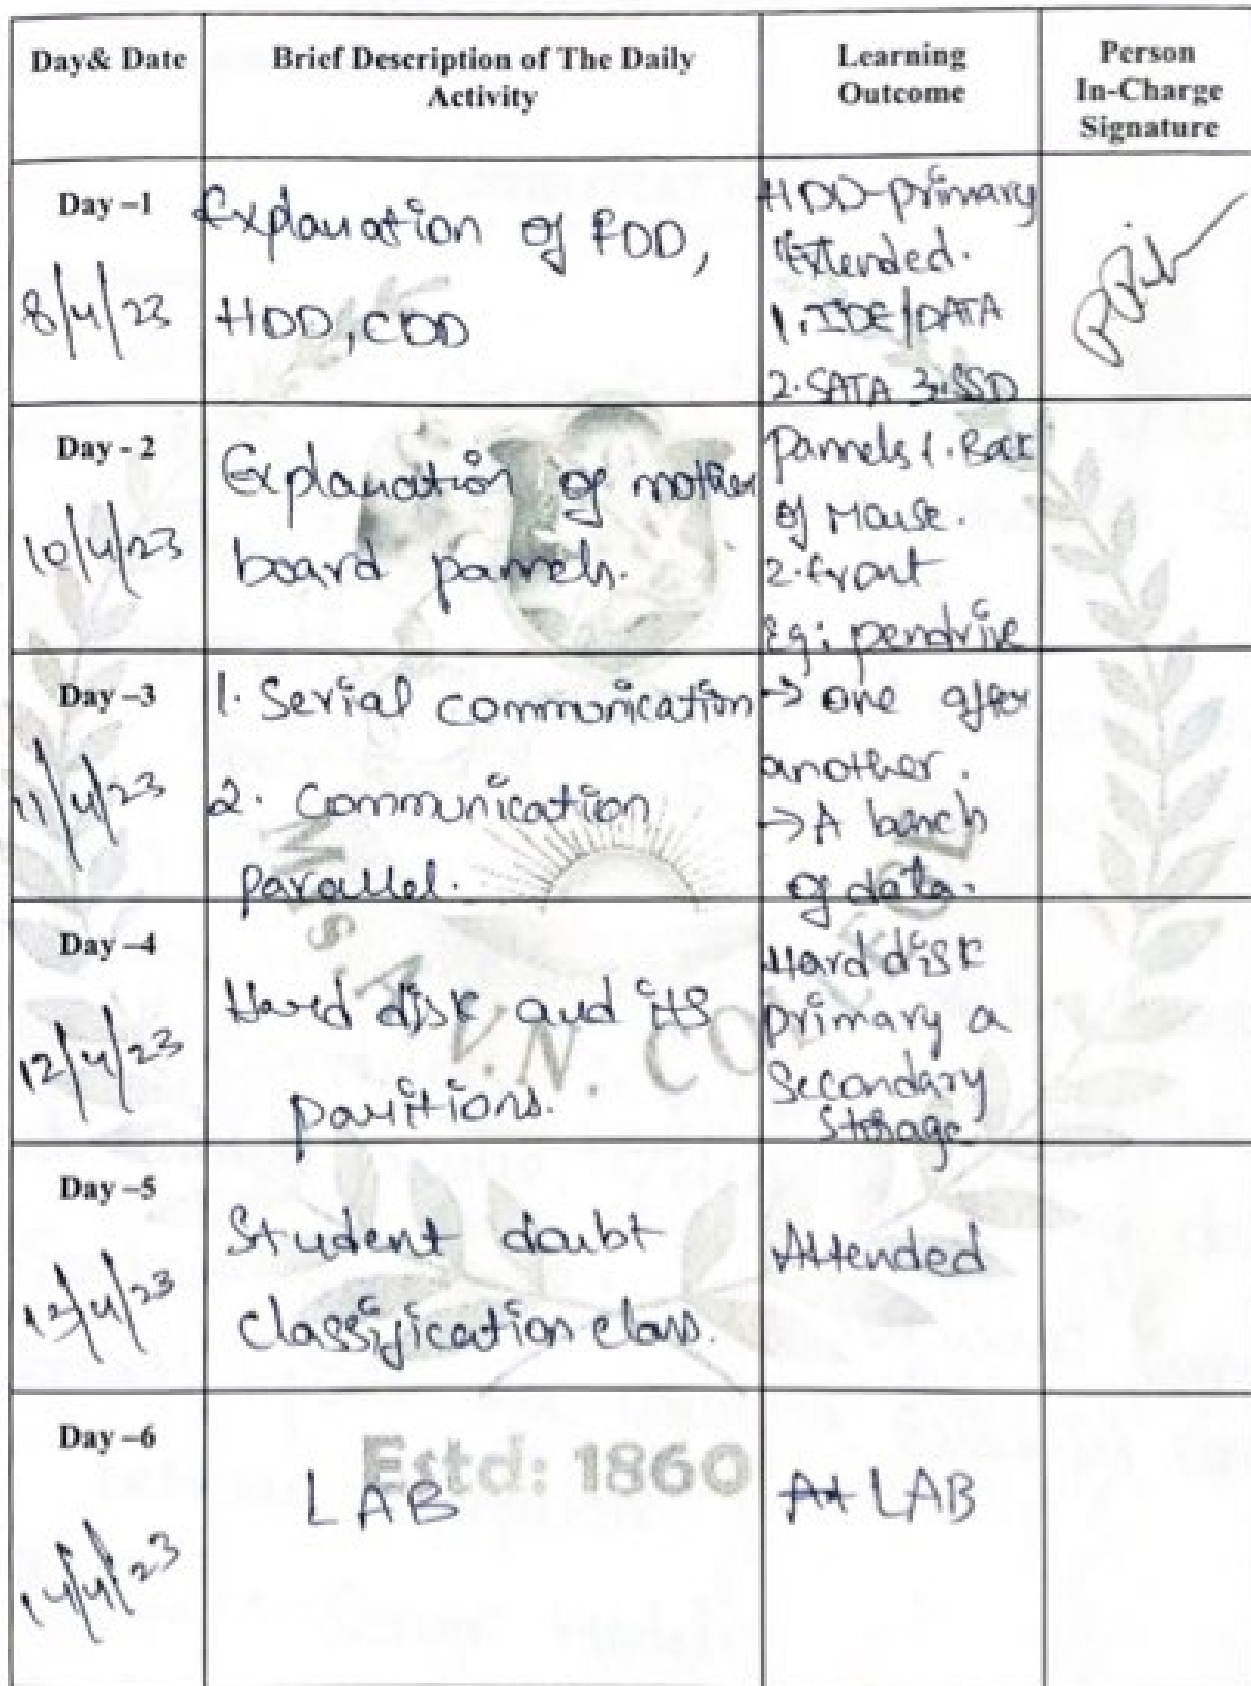 Day& Date
Brief Description of The Daily
Activity
Learning
Outcome
Person
In-Charge
Signature
Day –1
8/4/23
Explanation of FDD,
HDD, CDD
HDD-primary
Extended.
1. IDE/DATA
2. SATA 3. SSD
Day - 2
10/4/23
Explanation of mother
board pannels.
pannels 1. Back
of Mouse.
2. front
Eg: pendrive
Day –3
11/4/23
1. Serial communication
2. Communication
parallel.
→ one after
another.
→ A banch
of data.
Day –4
12/4/23
Hard disk and its
paritions.
Hard disk
primary a
Secondary
Storage
Day –5
Student doubt
classification class.
Attended
Day –6
14/4/23
LAB
At LAB
V.N. CO
Estd: 1860